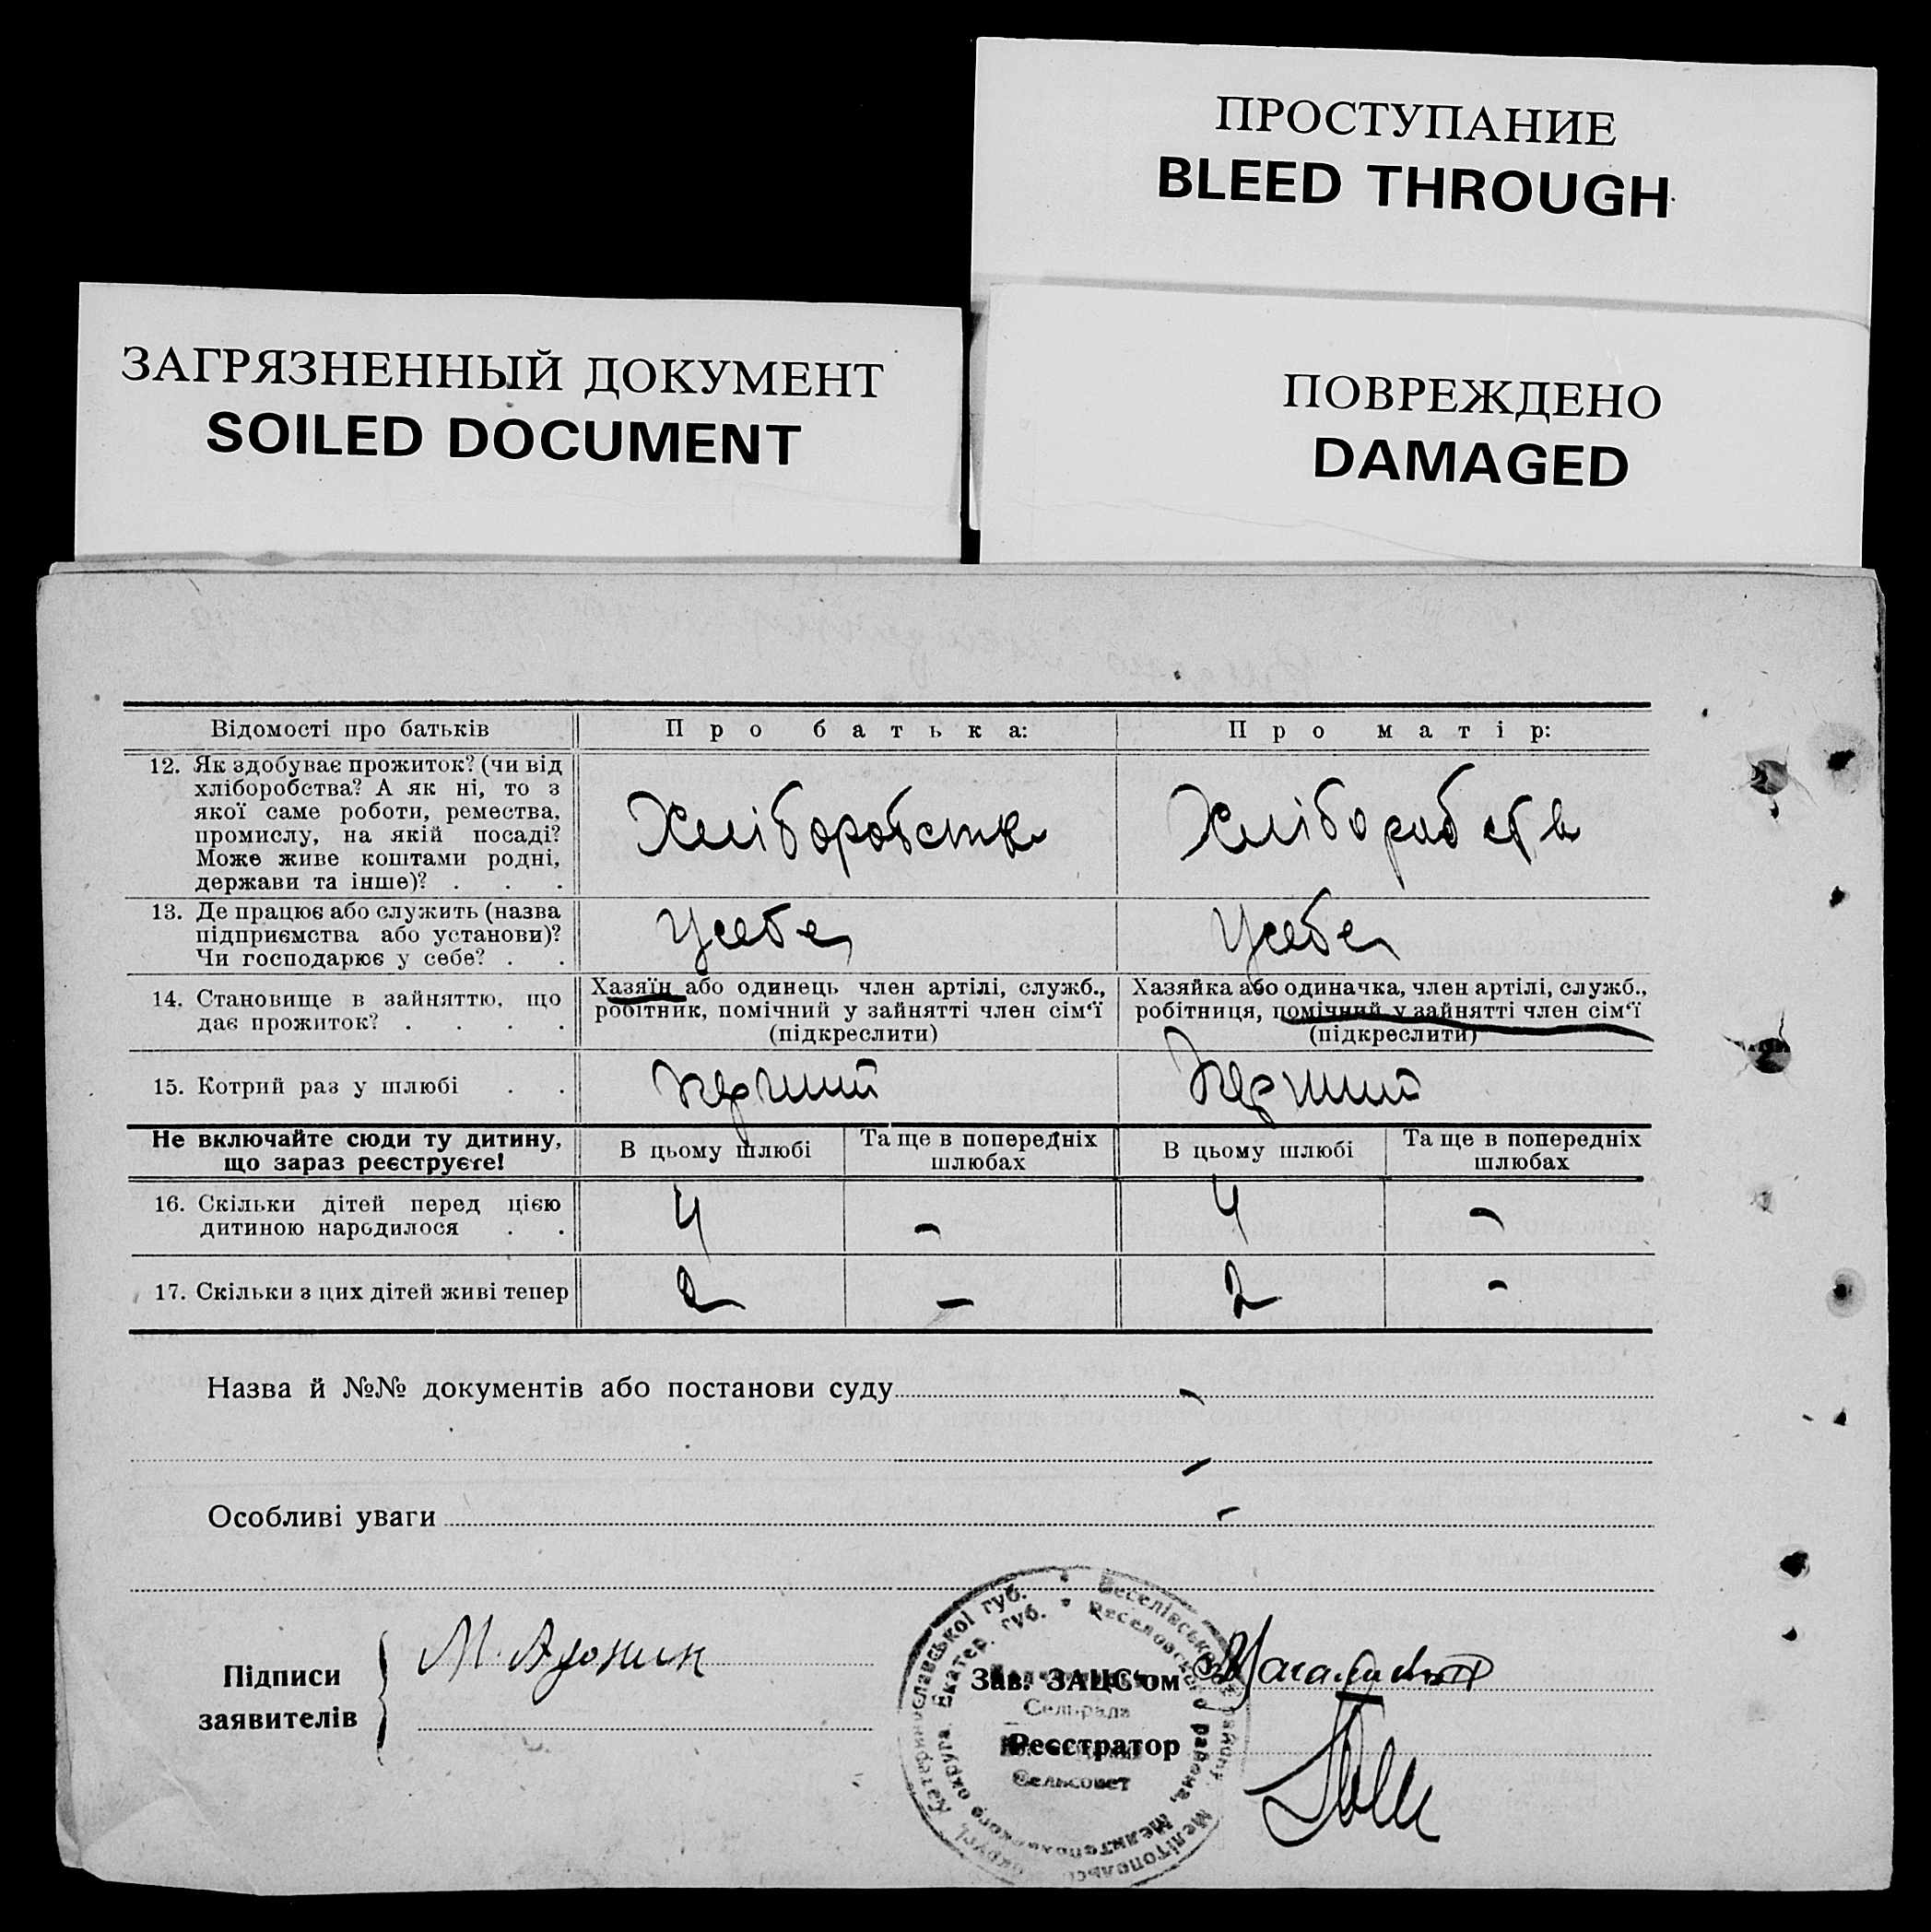 ПРОСТУПАНИЕ
BLEED THROUGH
ЗАГРЯЗНЕННЫЙ ДОКУМЕНТ
SOILED DOCUMENT
ПОВРЕЖДЕНО
DAMAGED
Відомості про батьків
Про батька:
Про матір:
12. Як здобуває прожиток? (чи від
хліборобства? А як ні, то з
якої саме роботи, ремества,
промислу, на якій посаді?
Може живе коштами родні,
держави та інше)? . . .
Хліборобства
Хліборобства
13. Де працює або служить (назва
підприємства або установи)?
Чи господарює у себе? . .
Усебе
Усебе
14. Становище в зайняттю, що
дає прожиток? . . . .
Хазяїн або одинець член артілі, служб.,
робітник, помічний у зайнятті член сім'ї
(підкреслити)
Хазяйка або одиначка, член артілі, служб.,
робітниця, помічний у зайнятті член сім'ї
(підкреслити)
15. Котрий раз у шлюбі . .
перший
перший
Не включайте сюди ту дитину,
що зараз реєструєте!
В цьому шлюбі
Та ще в попередніх
шлюбах
В цьому шлюбі
Та ще в попередніх
шлюбах
16. Скільки дітей перед цією
дитиною народилося . .
4 - 4 -
17. Скільки з цих дітей живі тепер
2 - 2 -
Назва й №№ документів або постанови суду -
-
Особливі уваги -
Підписи
заявителів
М.
Зав. ЗАЦС'ом
Реєстратор
Катеринославської губ. * Веселівськ району, Мелітопольс округі,
Екатер. губ. * Веселовского района, Мелитопольского округа,
Сельрада
Сельсовет